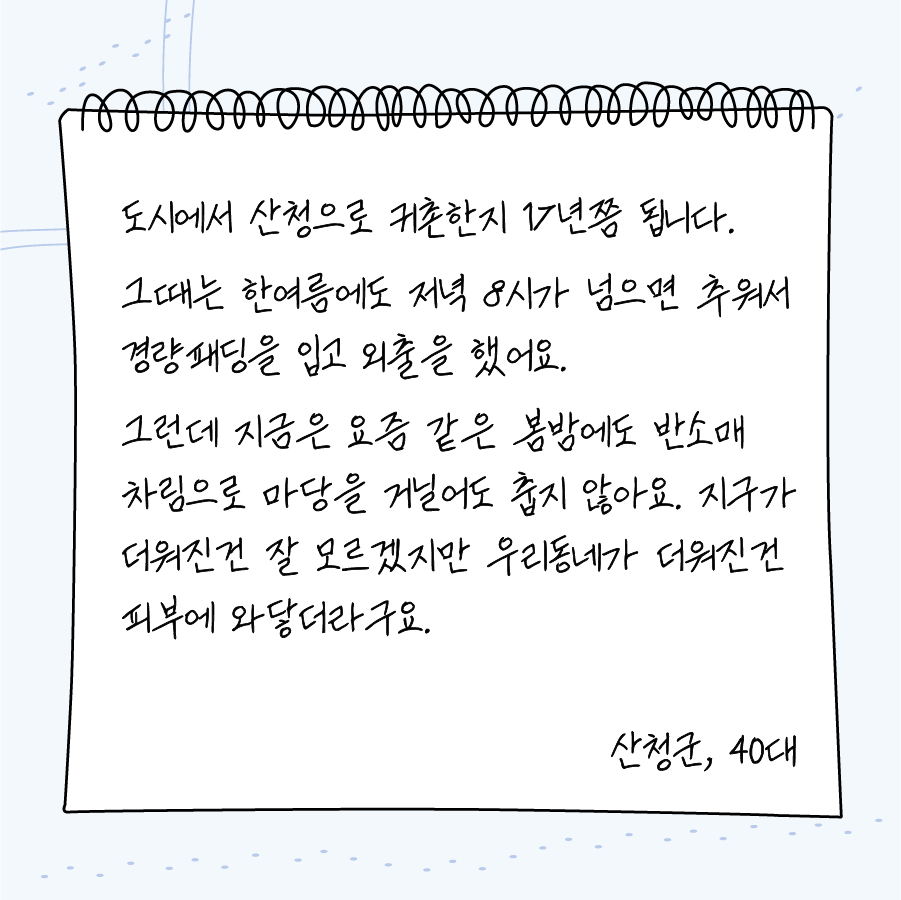 도시에서 산청으로 귀촌한지 17년쯤 됩니다.
그때는 한여름에도 저녁 8시가 넘으면 추워서
경량패딩을 입고 외출을 했어요.
그런데 지금은 요즘 같은 봄밤에도 반소매
차림으로 마당을 거닐어도 춥지 않아요. 지구가
더워진건 잘 모르겠지만 우리동네가 더워진건
피부에 와닿더라구요.
산청군, 40대